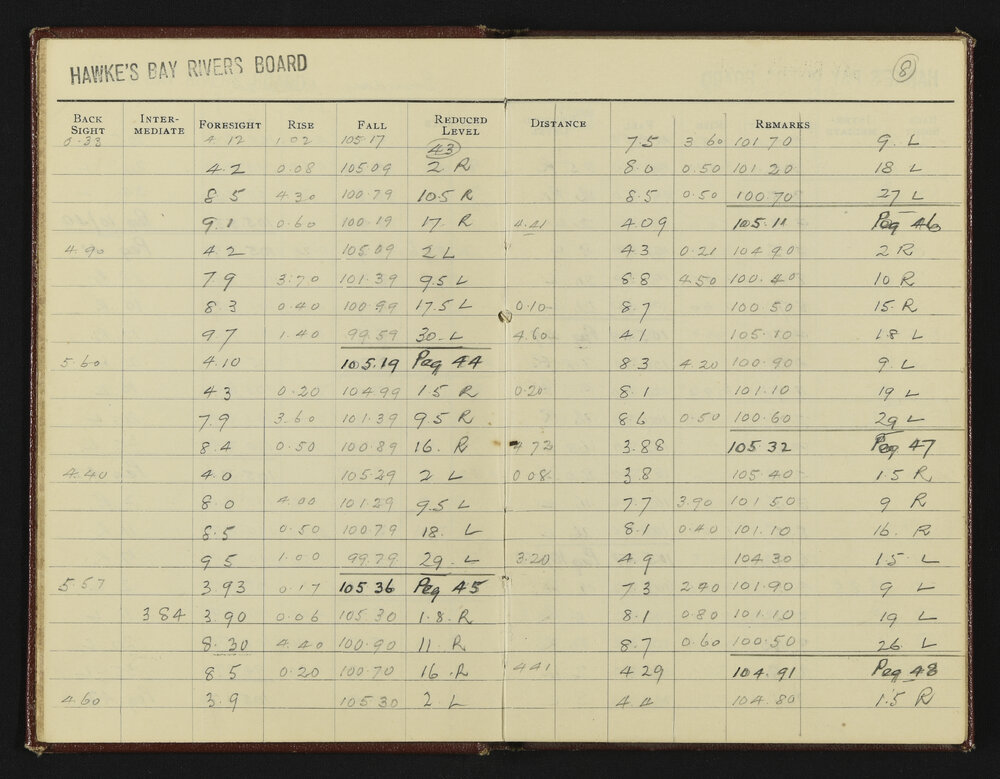 HAWKE'S BAY RIVERS BOARD
BACK SIGHT INTER-MEDIATE FORESIGHT RISE FALL REDUCED LEVEL
0.33 4.12 1.02 105.17 43
4.2 0.08 105.09 2 R
8.5 4.30 100.79 10.5 R
9.1 0.60 100.19 17. R
4.90 4.2 105.09 2 L
7.9 3.70 101.39 9.5 L
8.3 0.40 100.99 17.5 L
9.7 1.40 99.59 30. L
5.60 4.10 105.19 Peg 44
4.3 0.20 104.99 1.5 R
7.9 3.60 101.39 9.5 R
8.4 0.50 100.89 16. R
4.40 4.0 105.29 2 L
8.0 4.00 101.29 9.5 L
8.5 0.50 100.79 18. L
9.5 1.00 99.79 29. L
5.57 3.93 0.17 105.36 Peg 45
3.84 3.90 0.06 105.30 1.8. R
8.30 4.40 100.90 11. R
8.5 0.20 100.70 16. R
4.60 3.9 105.30 2. L
8
DISTANCE REMARKS
7.5 3.60 101.70 9. L
8.0 0.50 101.20 18 L
8.5 0.50 100.70 27 L
4.41 4.09 105.11 Peg 46
4.3 0.21 104.90 2 R
8.8 4.50 100.40 10 R
0.10 8.7 100.50 15. R
4.60 4.1 105.10 1.8 L
8.3 4.20 100.90 9. L
0.20 8.1 101.10 19 L
8.6 0.50 100.60 29 L
3.88 105.32 Peg 47
0.08 3.8 105.40 1.5 R
7.7 3.90 101.50 9 R
8.1 0.40 101.10 16. R
3.20 4.9 104.30 1.5 L
7.3 2.40 101.90 9 L
8.1 0.80 101.10 19 L
8.7 0.60 100.50 26. L
4.41 4.29 104.91 Peg 48
4.4 104.80 1.5 R